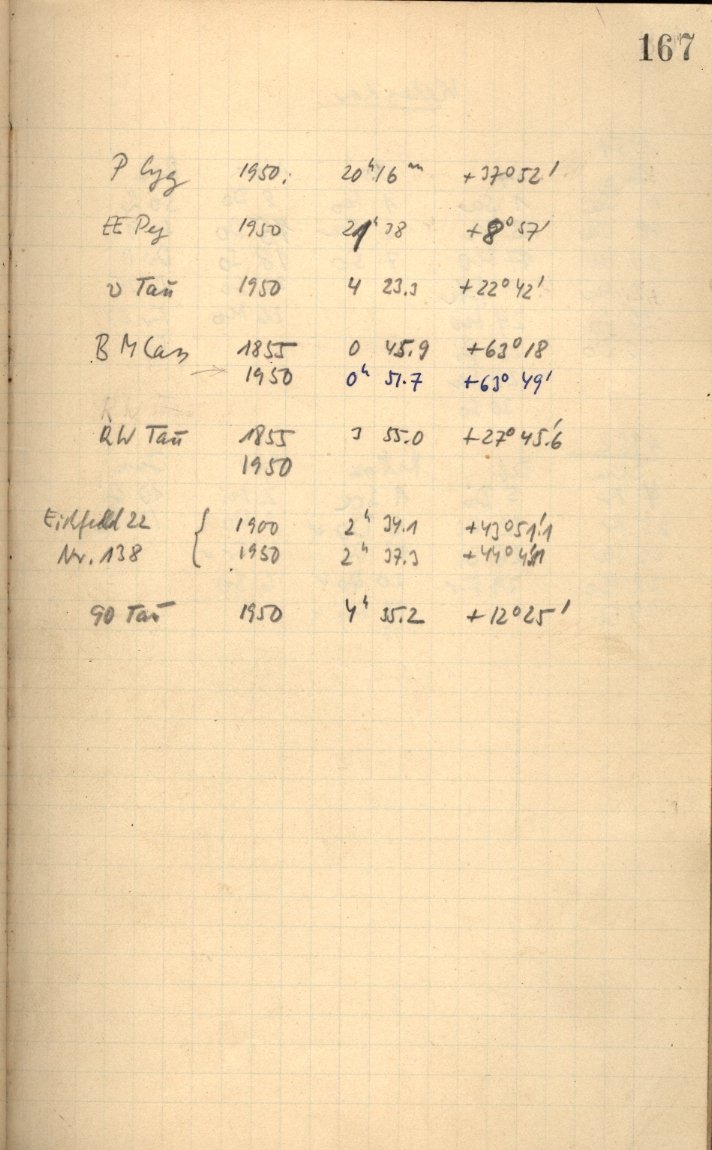 167
P Cyg 1950; 20ʰ 16ᵐ +37°52'
EE Peg 1950 21ʰ 38 +8°57'
υ Tau 1950 4 23.3 +22°42'
BM Cass 1855 0 45.9 +63°18
→ 1950 0ʰ 51.7 +63° 49'
RW Tau 1855 3 55.0 +27°45.'6
1950
22 { 1900 2ʰ 34.1 +43°51.'1
Nr. 138 1950 2ʰ 37.3 +44°
90 Tau 1950 4ʰ 35.2 +12°25'